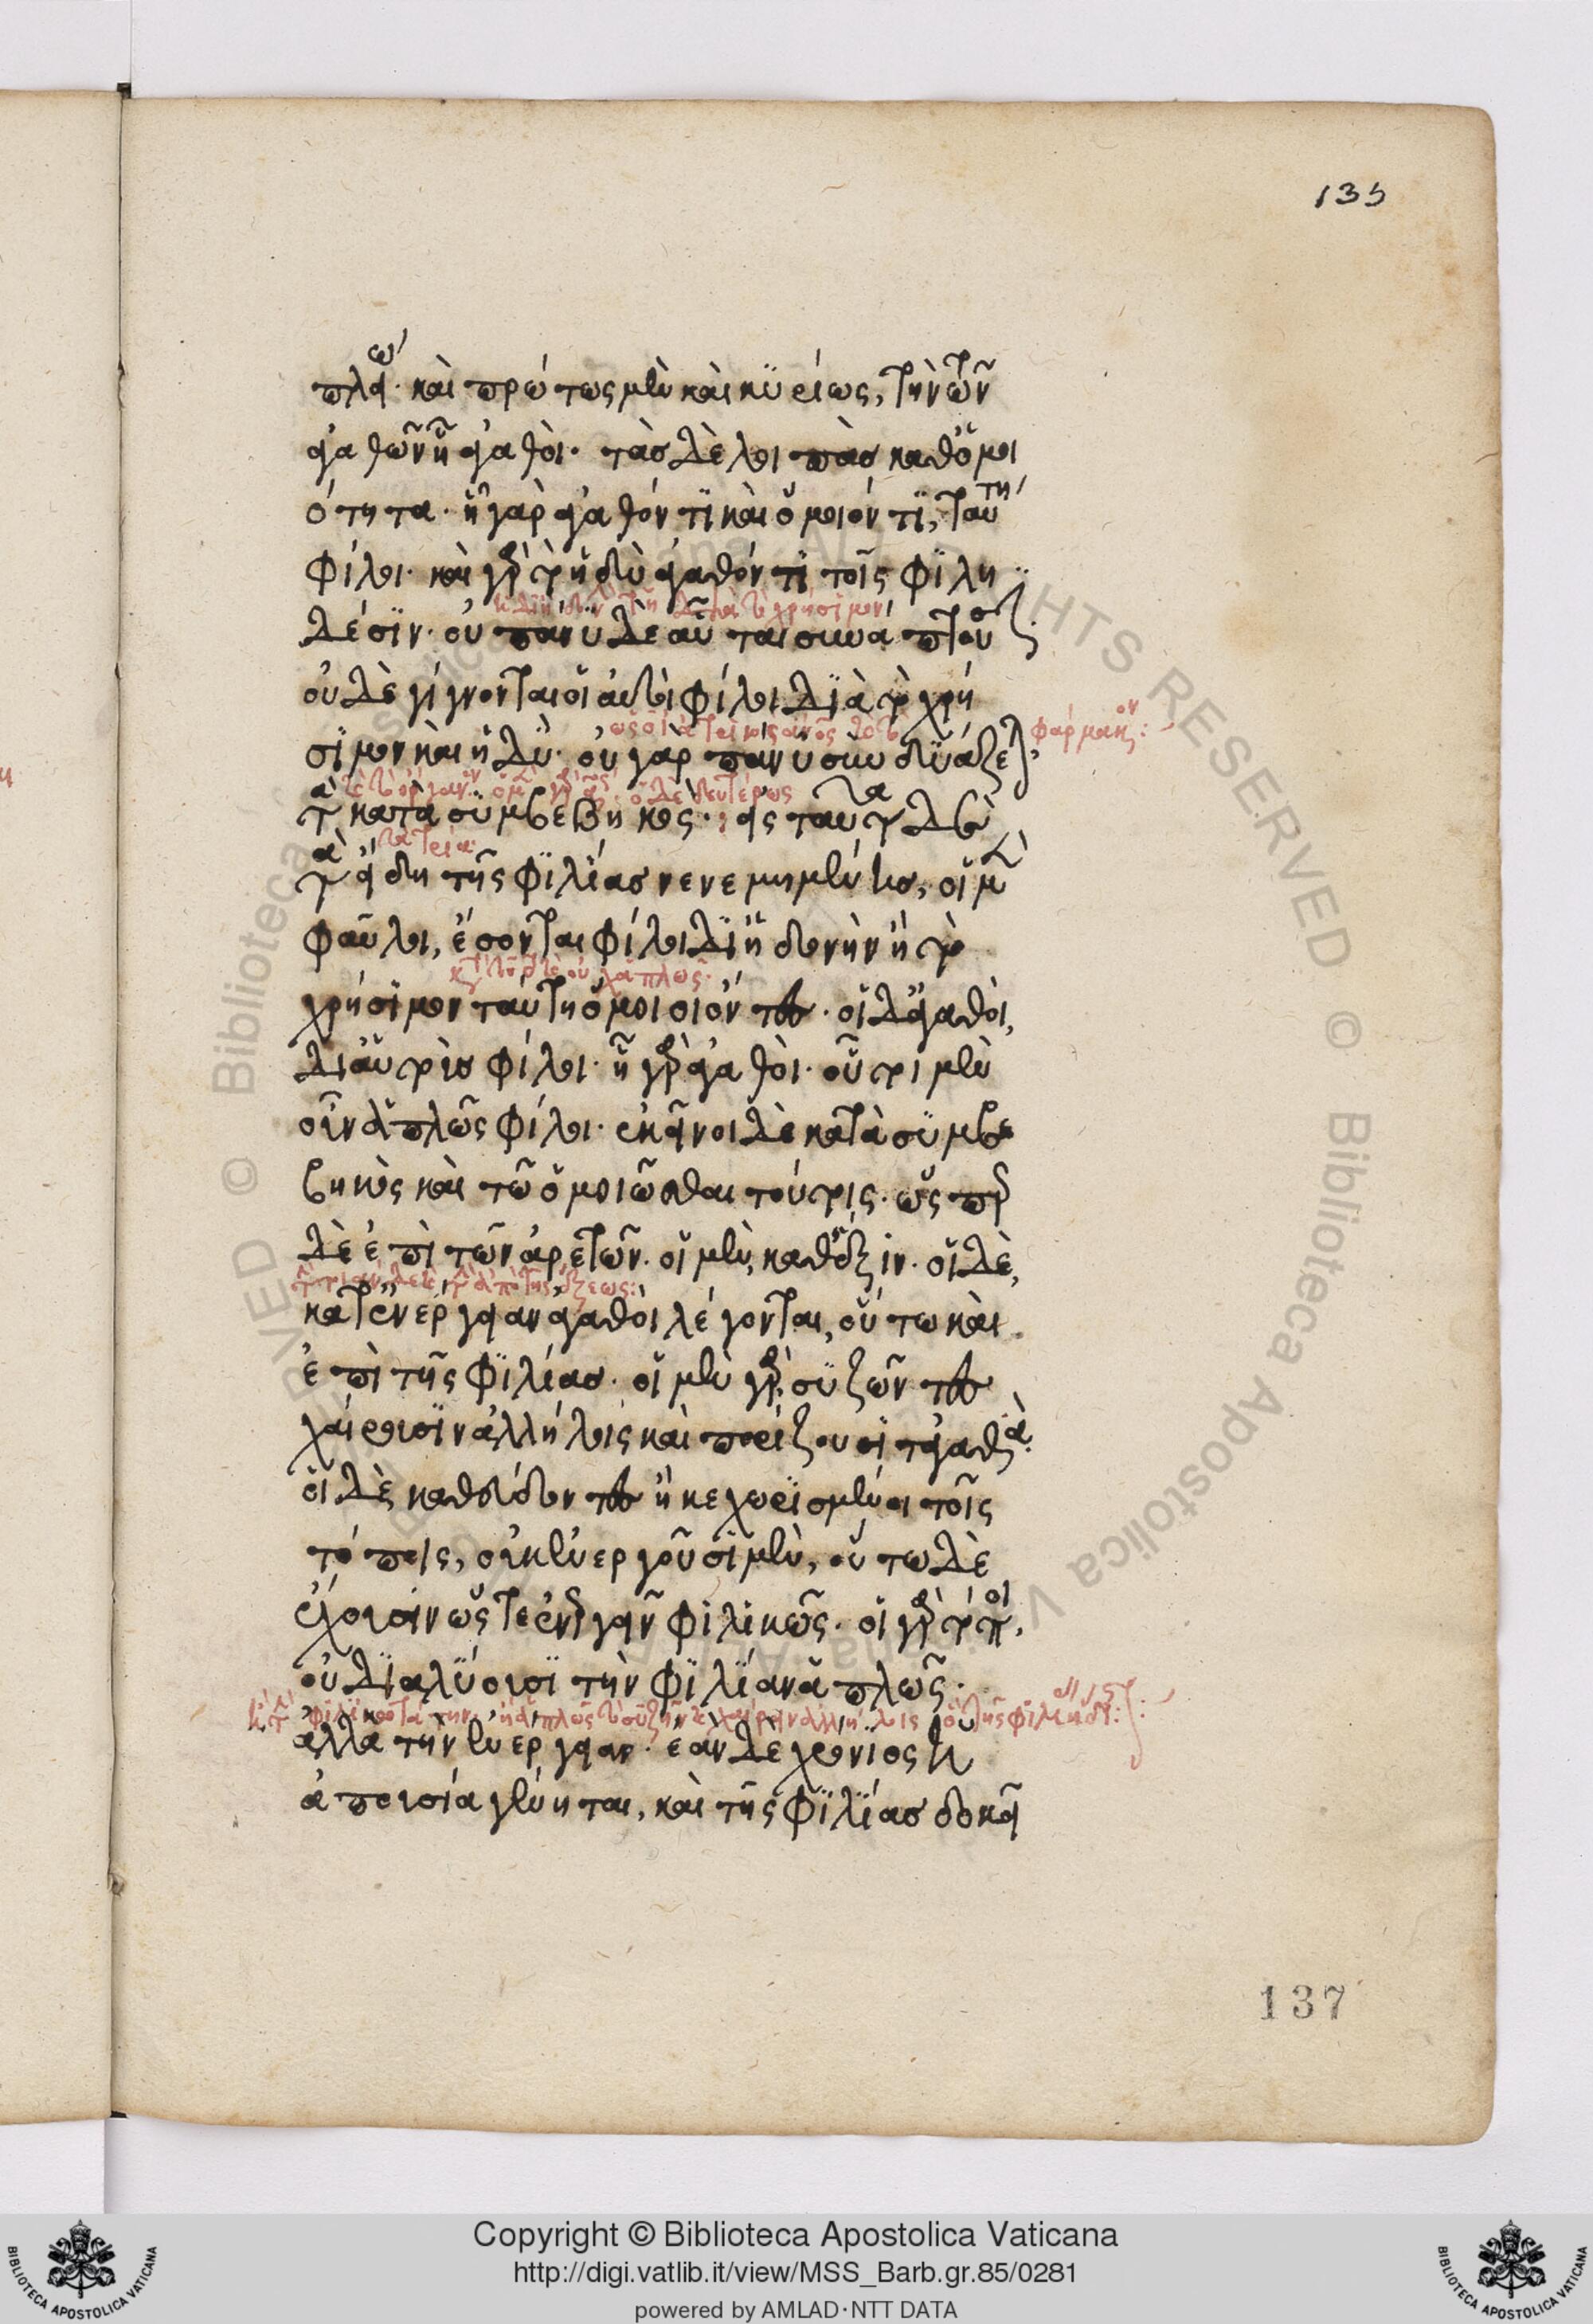 135
πλείω· καὶ πρώτως μὲν καὶ κυρίως, τὴν τῶν
ἀγαθῶν ᾗ ἀγαθοί· τὰς δὲ λοιπὰς καθ' ὁμοι
ότητα· ᾗ γὰρ ἀγαθόν τι καὶ ὅμοιόν τι, ταύτη
φίλοι· καὶ γὰρ τὸ ἡδὺ ἀγαθόν τι τοῖς φιλη
δέσιν· οὐ πάνυ δὲ αὗται συνάπτουσιν·
οὐδὲ γίγνονται οἱ αὐτοὶ φίλοι διὰ τὸ χρή
φάρμακον:
σιμον καὶ ἡδύ· οὐ γὰρ πάνυ συνδυάζεται
τὰ κατὰ συμβεβηκός· εἰς ταῦτα δὲ
τὰ εἴδη τῆς φιλίας νενεμημένης, οἱ μὲν
φαῦλοι, ἔσονται φίλοι δι' ἡδονὴν ἢ τὸ
χρήσιμον ταύτη ὅμοιοι ὄντες· οἱ δ' ἀγαθοὶ,
δι' αὑτοὺς φίλοι· ᾗ γὰρ ἀγαθοί· οὗτοι μὲν
οὖν ἁπλῶς φίλοι· ἐκεῖνοι δὲ κατὰ συμβε
βηκὸς καὶ τῷ ὁμοιῶσθαι τούτοις· ὥσπερ
δὲ ἐπὶ τῶν ἀρετῶν· οἱ μὲν, καθ' ἕξιν· οἱ δὲ,
κατ' ἐνέργειαν ἀγαθοὶ λέγονται, οὕτω καὶ
ἐπὶ τῆς φιλίας· οἱ μὲν γὰρ, συζῶντες
χαίρουσιν ἀλλήλοις καὶ πορίζουσι τἀγαθὰ·
οἱ δὲ καθεύδοντες ἢ κεχωρισμένοι τοῖς
τόποις, οὐκ ἐνεργοῦσι μὲν, οὕτω δὲ
ἔχουσιν ὥστε ἐνεργεῖν φιλικῶς· οἱ γὰρ τόποι,
οὐ διαλύουσι τὴν φιλίαν ἁπλῶς·
ἀλλὰ τὴν ἐνέργειαν· ἐὰν δὲ χρόνιος ἡ
ἀπουσία γένηται, καὶ τῆς φιλίας δοκεῖ
137
Copyright © Biblioteca Apostolica Vaticana
http://digi.vatlib.it/view/MSS_Barb.gr.85/0281
powered by AMLAD·NTT DATA